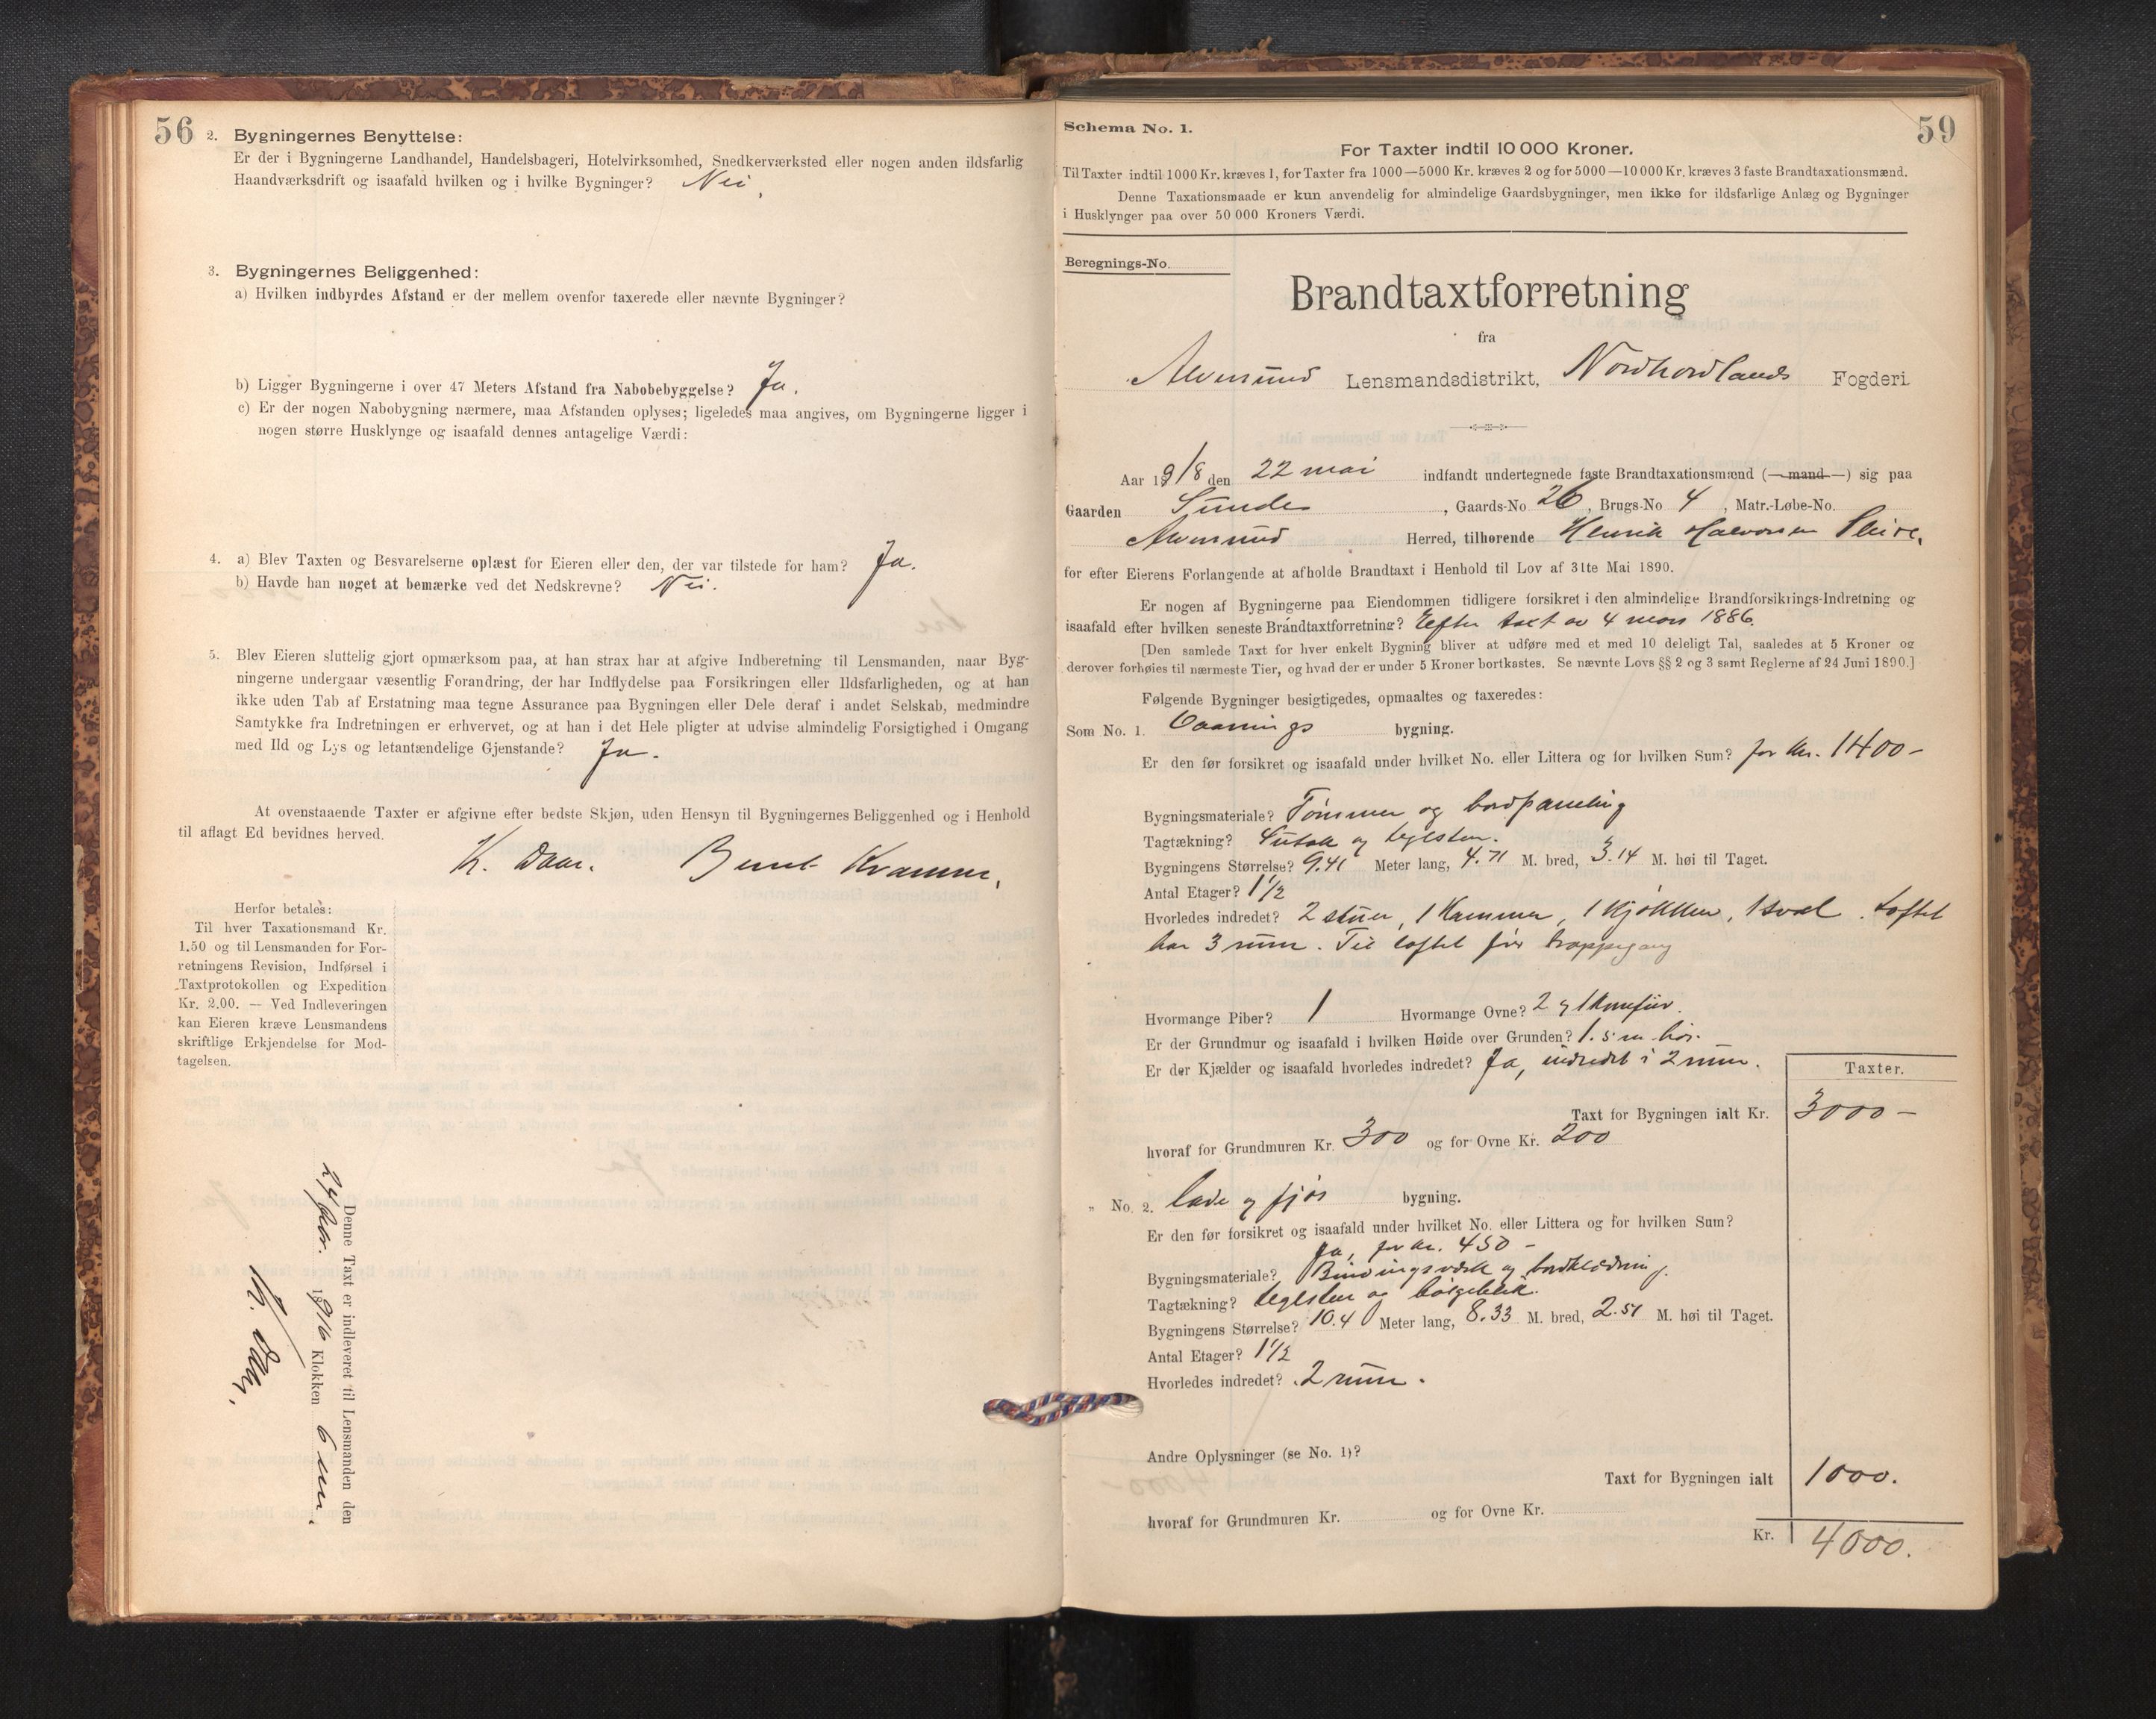 56
2. Bygningernes Benyttelse:
Er der i Bygningerne Landhandel, Handelsbageri, Hotelvirksomhed, Snedkerværksted eller nogen anden ildsfarlig
Haandværksdrift og isaafald hvilken og i hvilke Bygninger? Nei.
3. Bygningernes Beliggenhed:
a) Hvilken indbyrdes Afstand er der mellem ovenfor taxerede eller nævnte Bygninger?
b) Ligger Bygningerne i over 47 Meters Afstand fra Nabobebyggelse? Ja.
c) Er der nogen Nabobygning nærmere, maa Afstanden oplyses; ligeledes maa angives, om Bygningerne ligger i
nogen større Husklynge og isaafald dennes antagelige Værdi:
4. a) Blev Taxten og Besvarelserne oplæst for Eieren eller den, der var tilstede for ham? Ja.
b) Havde han noget at bemærke ved det Nedskrevne? Nei.
5. Blev Eieren sluttelig gjort opmærksom paa, at han strax har at afgive Indberetning til Lensmanden, naar Byg-
ningerne undergaar væsentlig Forandring, der har Indflydelse paa Forsikringen eller Ildsfarligheden, og at han
ikke uden Tab af Erstatning maa tegne Assurance paa Bygningen eller Dele deraf i andet Selskab, medmindre
Samtykke fra Indretningen er erhvervet, og at han i det Hele pligter at udvise almindelig Forsigtighed i Omgang
med Ild og Lys og letantændelige Gjenstande? Ja.
At ovenstaaende Taxter er afgivne efter bedste Skjøn, uden Hensyn til Bygningernes Beliggenhed og i Henhold
til aflagt Ed bevidnes herved.
K. Daae. Bernt Kvamme.
Herfor betales:
Til hver Taxationsmand Kr.
1.50 og til Lensmanden for For-
retningens Revision, Indførsel i
Taxtprotokollen og Expedition
Kr. 2.00. — Ved Indleveringen
kan Eieren kræve Lensmandens
skriftlige Erkjendelse for Mod-
tagelsen.
Denne Taxt er indleveret til Lensmanden den
1916 Klokken 6 em.
K. Daae.
59
Schema No. 1.
For Taxter indtil 10 000 Kroner.
Til Taxter indtil 1000 Kr. kræves 1, for Taxter fra 1000—5000 Kr. kræves 2 og for 5000—10 000 Kr. kræves 3 faste Brandtaxationsmænd.
Denne Taxationsmaade er kun anvendelig for almindelige Gaardsbygninger, men ikke for ildsfarlige Anlæg og Bygninger
i Husklynger paa over 50 000 Kroners Værdi.
Beregnings-No.
Brandtaxtforretning
fra
Alversund Lensmandsdistrikt, Nordhordlands Fogderi.
Aar 1918 den 22 mai indfandt undertegnede faste Brandtaxationsmænd (—mand—) sig paa
Gaarden Sunde, Gaards-No 26, Brugs-No 4, Matr.-Løbe-No.
Alversund Herred, tilhørende Henrik Halvorsen
for efter Eierens Forlangende at afholde Brandtaxt i Henhold til Lov af 31te Mai 1890.
Er nogen af Bygningerne paa Eiendommen tidligere forsikret i den almindelige Brandforsikrings-Indretning og
isaafald efter hvilken seneste Brandtaxtforretning? Efter taxt av 4 mars 1886.
[Den samlede Taxt for hver enkelt Bygning bliver at udføre med et med 10 deleligt Tal, saaledes at 5 Kroner og
derover forhøies til nærmeste Tier, og hvad der er under 5 Kroner bortkastes. Se nævnte Lovs §§ 2 og 3 samt Reglerne af 24 Juni 1890.]
Følgende Bygninger besigtigedes, opmaaltes og taxeredes:
Som No. 1. Vaanings bygning.
Er den før forsikret og isaafald under hvilket No. eller Littera og for hvilken Sum? for kr. 1400-
Bygningsmateriale? Tømmer og bordpaneling
Tagtækning? Sutak og teglsten.
Bygningens Størrelse? 9.41 Meter lang, 4.71 M. bred, 3.14 M. høi til Taget.
Antal Etager? 1 1/2
Hvorledes indredet? 2 stuer, 1 Kammer, 1 Kjøkken, 1 sval. Loftet
har 3 rum. Til loftet fører trappegang
Hvormange Piber? 1 Hvormange Ovne? 2 og 1 Komfur.
Er der Grundmur og isaafald i hvilken Høide over Grunden? 1.5 m høi.
Er der Kjælder og isaafald hvorledes indredet? Ja, indredet i 2 rum.
Taxter.
Taxt for Bygningen ialt Kr. 3000-
hvoraf for Grundmuren Kr. 300 og for Ovne Kr. 200
" No. 2. Lade og fjøs bygning.
Er den før forsikret og isaafald under hvilket No. eller Littera og for hvilken Sum?
Ja, for kr. 450-
Bygningsmateriale? Bindingsverk og bordklædning.
Tagtækning? teglsten og bølgeblik.
Bygningens Størrelse? 10.4 Meter lang, 8.33 M. bred, 2.51 M. høi til Taget.
Antal Etager? 1 1/2
Hvorledes indredet? 2 rum.
Andre Oplysninger (se No. 1)?
Taxt for Bygningen ialt 1000.
hvoraf for Grundmuren Kr. og for Ovne Kr.
Kr. 4000.